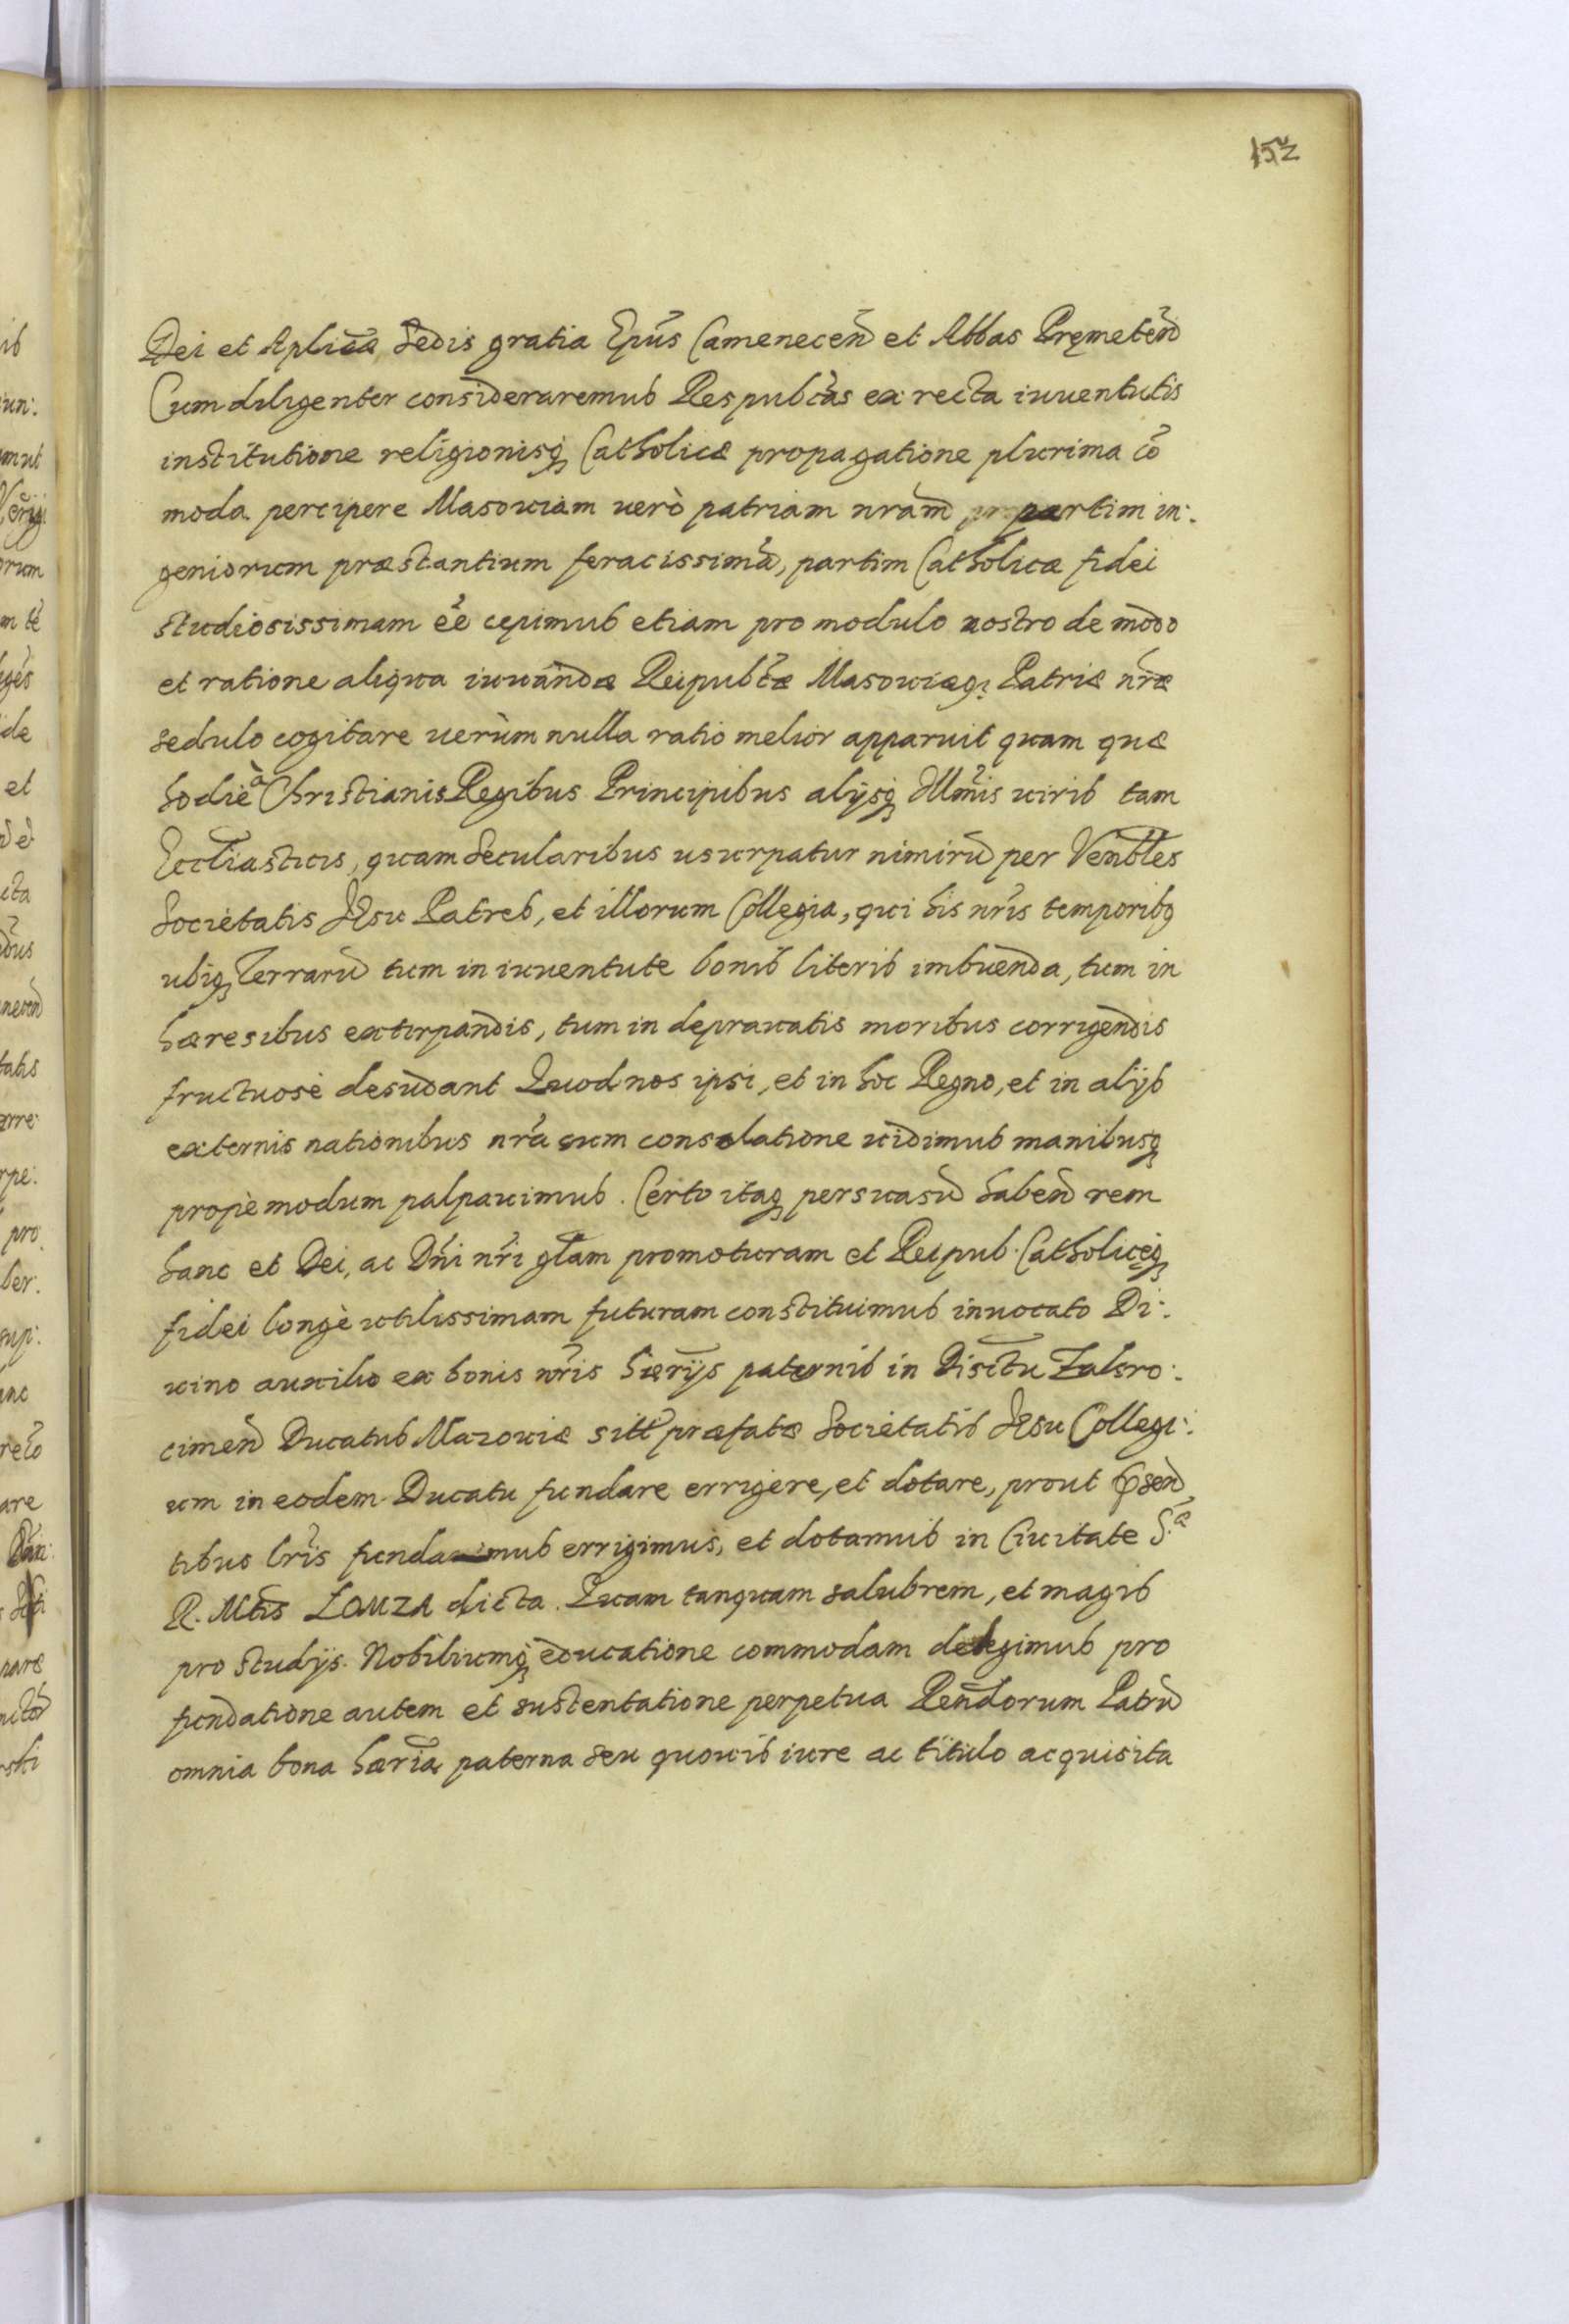 152
Dei et Aplicæ Sedis gratia Epūs Camenecen̄ et Abbas Pręmeten̄
Cum diligenter consideraremus Respubc̄as ex recta iuuentutis
institutione religionisq̨ Catholicæ propagatione plurima cō
moda percipere Masouiam uerò patriam nram̄ partim in:
geniorum præstantium feracissimā, partim Catholicæ fidei
studiosissimam ēe cepimus etiam pro modulo nostro de modo
et ratione aliqua iuuandæ Reipubc̄æ Masouiæq̨ Patriæ nr̄æ
sedulo cogitare uerùm nulla ratio melior apparuit quam quæ
hodiè à Christianis Regibus Principibus alijsq̨ Illm̄is uiris tam
Eccl̄iasticis, quam Secularibus usurpatur nimirū per Venbl̄es
Societatis JEsu Patres, et illorum Collegia, qui his nr̄is temporibq̨
ubiq̨ Terrarū tum in iuuentute bonis literis imbuenda, tum in
hæresibus extirpandis, tum in deprauatis moribus corrigendis
fructuosè desudant Quod nos ipsi, et in hoc Regno, et in alijs
externis nationibus nr̄a cum consolatione uidimus manibusq̨
propè modum palpauimus. Certo itaq̨ persuasū haben̄ rem
hanc et Dei, ac Dn̄i nr̄i gl̄am promoturam et Reipub. Catholicęq̨
fidei longè utilissimam futuram constituimus inuocato Di:
uino auxilio ex bonis nr̄is hærijs paternis in Disctu Zakro:
cimen̄ Ducatus Mazouiæ sitt̄ præfatæ Societatis JEsu Collegi:
um in eodem Ducatu fundare errigere, et dotare, prout p̄sen̄
tibus lr̄is fundamus errigimus, et dotamus in Ciuitate S.æ
R. Mt̄is LOMZA dicta. Quam tanquam salubrem, et magis
pro studijs Nobiliumq̨ educatione commodam delegimus pro
fundatione autem et sustentatione perpetua Rend̄orum Patrū
omnia bona hær̄ia paterna seu quouis iure ac titulo acquisita